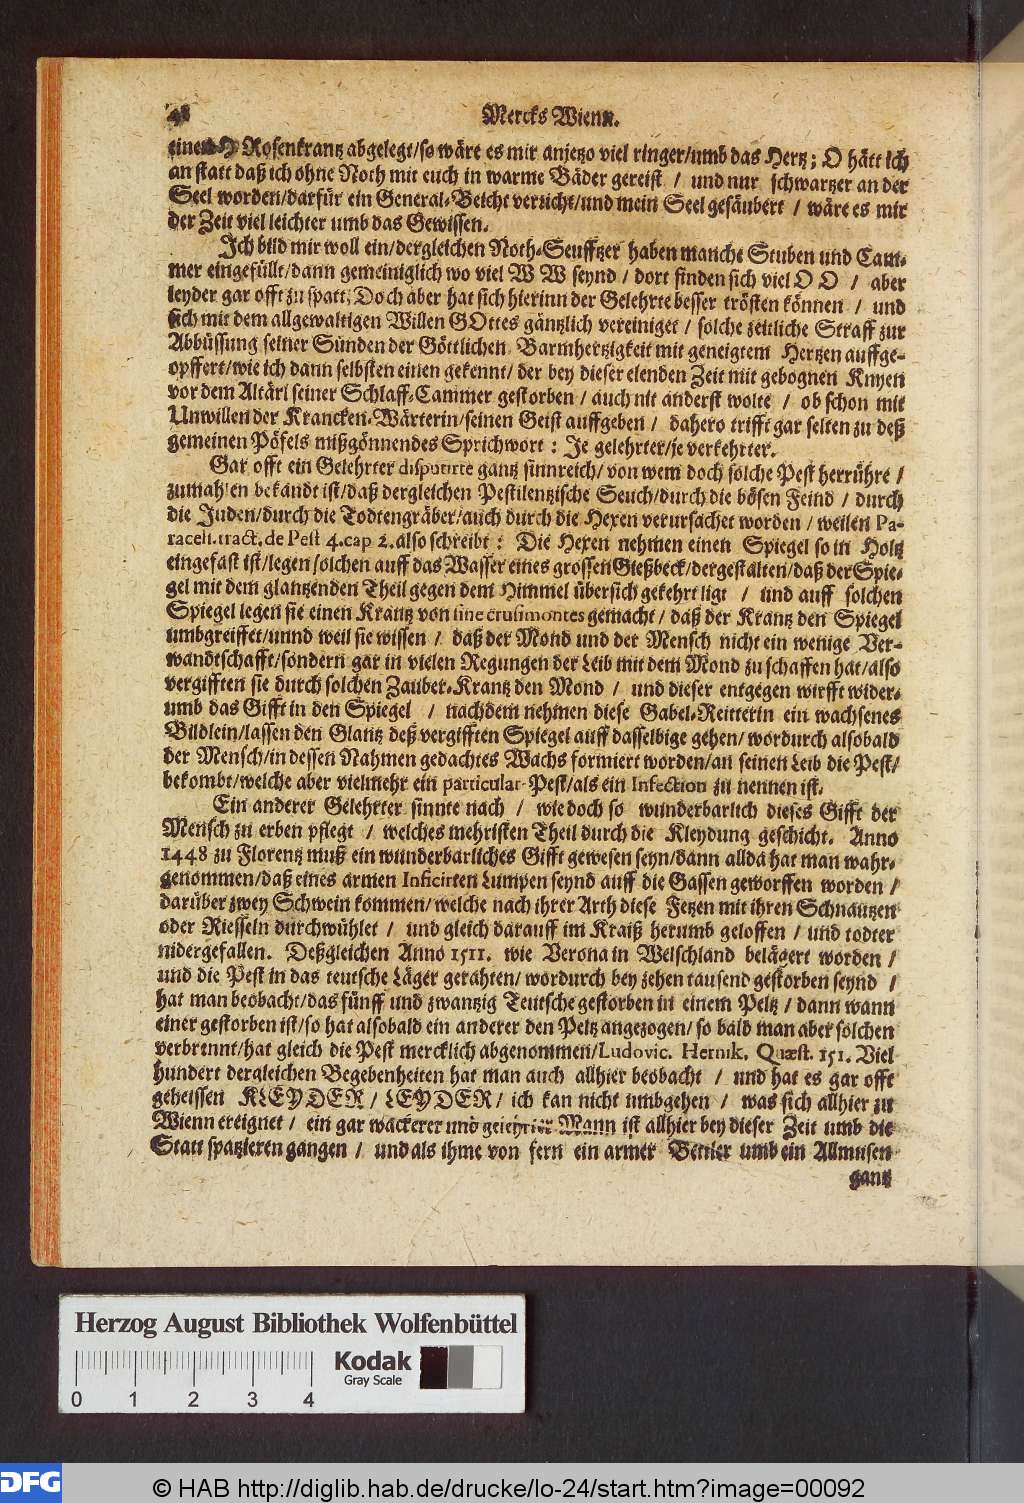 48 Mercks Wienn.
einen Rosenkrantz abgelegt/so wäre es mir anjetzo viel ringer/umb das Hertz; O hätt ich
an statt daß ich ohne Noth mit euch in warme Bäder gereist / und nur schwartzer an der
Seel worden/darfür ein General-Beicht verricht/und mein Seel gesäubert / wäre es mir
der Zeit viel leichter umb das Gewissen.
Ich bild mir woll ein/dergleichen Noth-Seufftzer haben manche Stuben und Cam-
mer eingefüllt/dann gemeiniglich wo viel W W seynd / dort finden sich viel O O / aber
leyder gar offt zu spatt; Doch aber hat sich hierinn der Gelehrte besser trösten können / und
sich mit dem allgewaltigen Willen GOttes gäntzlich vereiniget / solche zeitliche Straff zur
Abbüssung seiner Sünden der Göttlichen Barmhertzigkeit mit geneigtem Hertzen auffge-
opffert/wie ich dann selbsten einen gekennt/ der bey dieser elenden Zeit mit gebognen Knyen
vor dem Altärl seiner Schlaff-Cammer gestorben / auch nit anderst wolte / ob schon mit
Unwillen der Krancken-Wärterin/seinen Geist auffgeben / dahero trifft gar selten zu deß
gemeinen Pöfels mißgönnendes Sprichwort : Je gelehrter/je verkehrter.
Gar offt ein Gelehrter disputirte gantz sinnreich/ von wem doch solche Pest herrühre /
zumahlen bekandt ist/daß dergleichen Pestilentzische Seuch/durch die bösen Feind / durch
die Juden/durch die Todtengräber/auch durch die Hexen verursachet worden / weilen Pa-
racell. tract. de Pest 4. cap 2. also schreibt : Die Hexen nehmen einen Spiegel so in Holtz
eingefast ist/legen solchen auff das Wasser eines grossen Gießbeck/dergestalten/daß der Spie-
gel mit dem glantzenden Theil gegen dem Himmel übersich gekehrt ligt / und auff solchen
Spiegel legen sie einen Krantz von sine crusimontes gemacht / daß der Krantz den Spiegel
umbgreiffet/unnd weil sie wissen / daß der Mond und der Mensch nicht ein wenige Ver-
wandtschafft/sondern gar in vielen Regungen der Leib mit dem Mond zu schaffen hat/also
vergifften sie durch solchen Zauber-Krantz den Mond / und dieser entgegen wirfft wider-
umb das Gifft in den Spiegel / nachdem nehmen diese Gabel-Reitterin ein wachsenes
Bildlein/lassen den Glantz deß vergifften Spiegel auff dasselbige gehen/ wordurch alsobald
der Mensch/in dessen Nahmen gedachtes Wachs formiert worden/an seinen Leib die Pest/
bekombt/welche aber vielmehr ein particular-Pest/als ein Infection zu nennen ist.
Ein anderer Gelehrter sinnte nach / wie doch so wunderbarlich dieses Gifft der
Mensch zu erben pflegt / welches mehristen Theil durch die Kleydung geschicht. Anno
1448 zu Florentz muß ein wunderbarliches Gifft gewesen seyn/dann allda hat man wahr-
genommen/daß eines armen Inficirten Lumpen seynd auff die Gassen geworffen worden /
darüber zwey Schwein kommen/ welche nach ihrer Arth diese Fetzen mit ihren Schnautzen
oder Riesseln durchwühlet / und gleich darauff im Kraiß herumb geloffen / und todter
nidergefallen. Deßgleichen Anno 1511. wie Verona in Welschland belägert worden /
und die Pest in das teutsche Läger gerahten/ wordurch bey zehen tausend gestorben seynd /
hat man beobacht/das fünff und zwantzig Teutsche gestorben in einem Peltz / dann wann
einer gestorben ist/so hat alsobald ein anderer den Peltz angezogen/ so bald man aber solchen
verbrennt/hat gleich die Pest mercklich abgenommen/Ludovic. Hernik. Quæst. 151. Viel
hundert dergleichen Begebenheiten hat man auch allhier beobacht / und hat es gar offt
geheissen KLEYDER / LEYDER / ich kan nicht umbgehen / was sich allhier zu
Wienn ereignet / ein gar wackerer und gelehrter Mann ist allhier bey dieser Zeit umb die
Statt spatzieren gangen / und als ihme von fern ein armer Bettler umb ein Allmusen
gantz
Herzog August Bibliothek Wolfenbüttel
0 1 2 3 4
Kodak
Gray Scale
DFG © HAB http://diglib.hab.de/drucke/lo-24/start.htm?image=00092